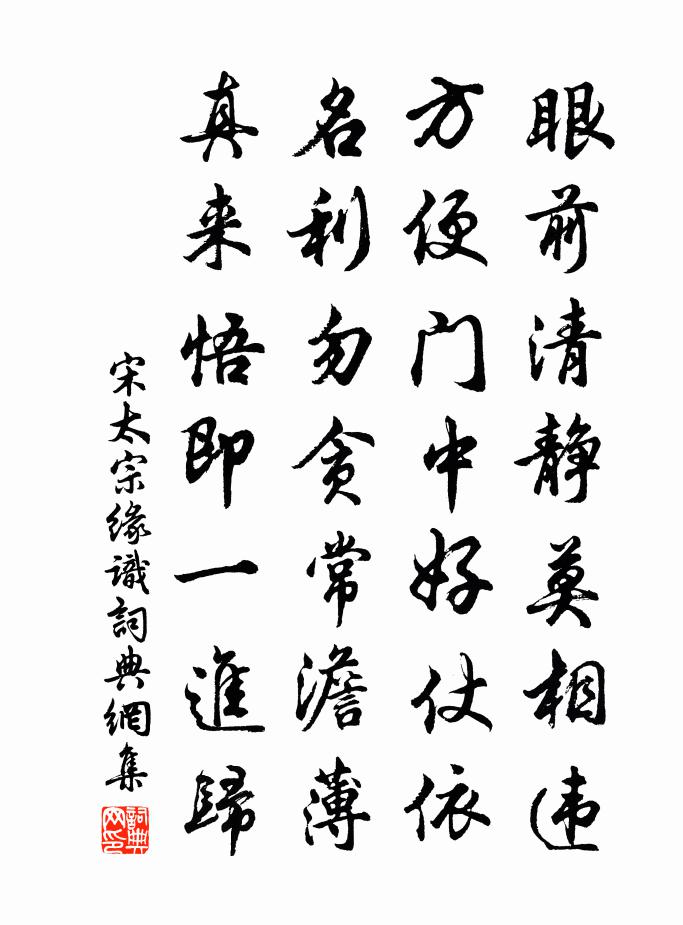 眼前清静莫相违
方便门中好仗依
名利勿贪常澹薄
真来悟即一進歸
宋太宗缘識詞典網集
詞典网印